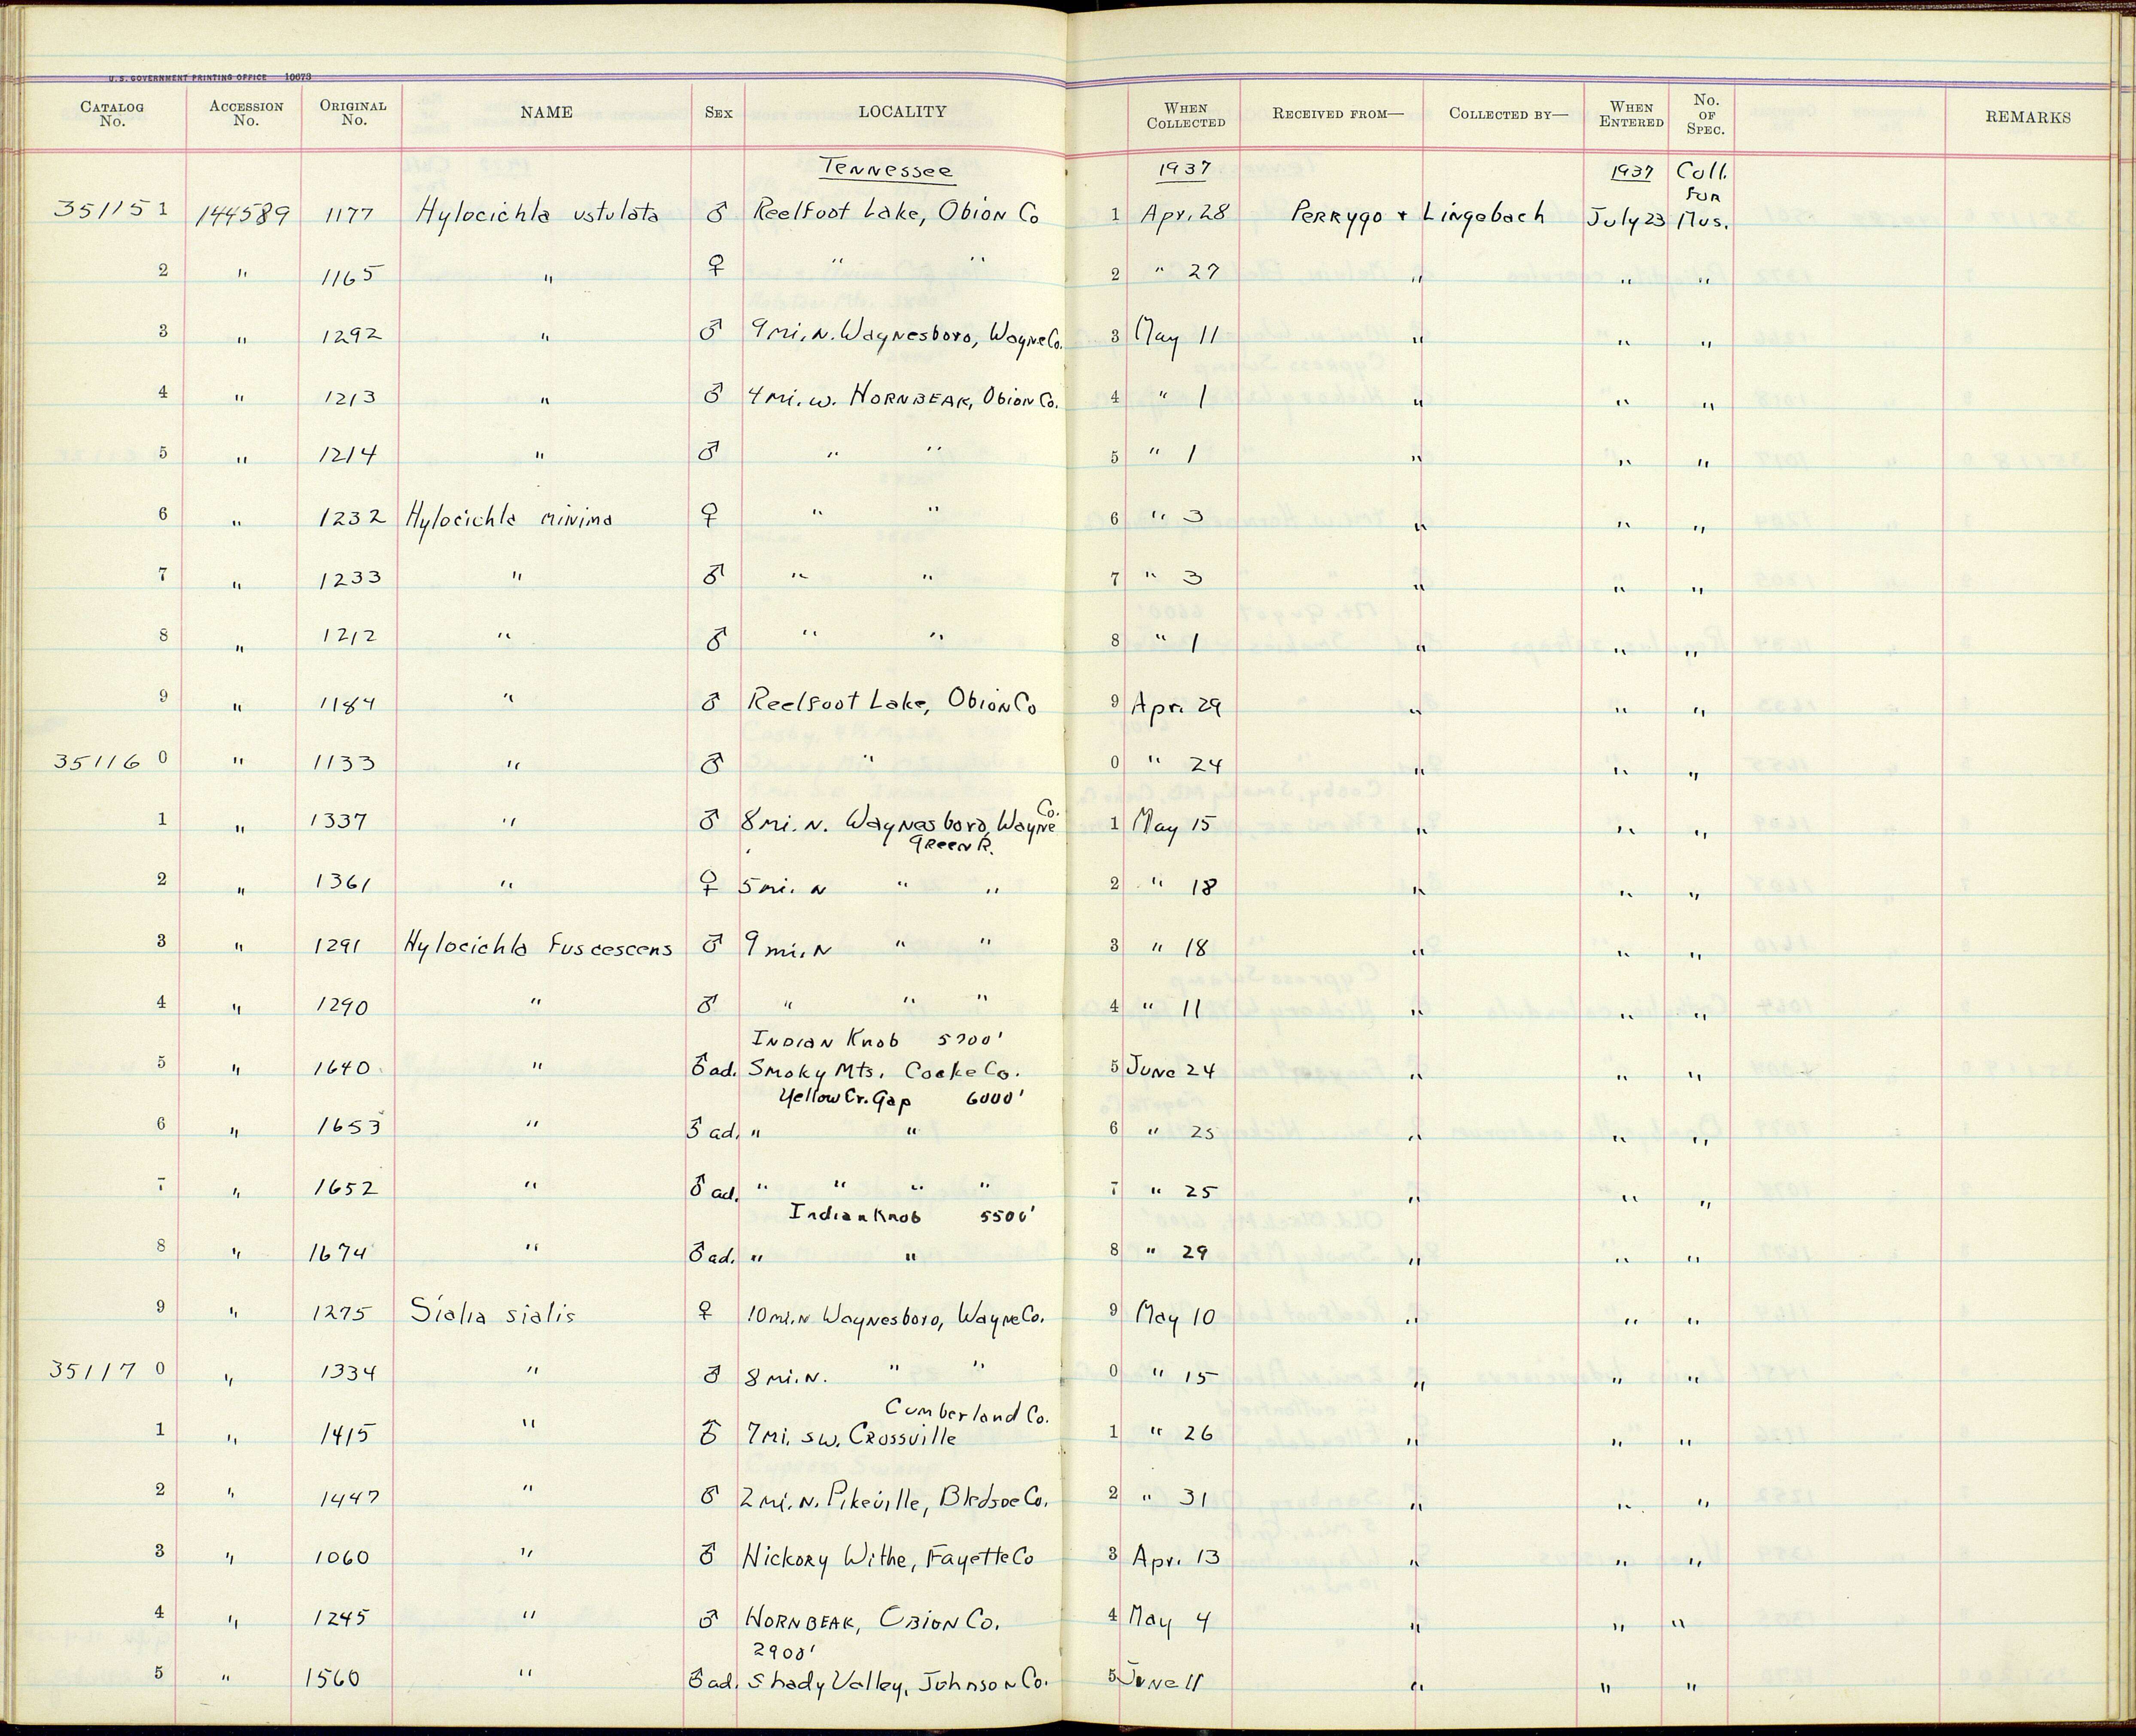 U.S. GOVERNMENT PRINTING OFFICE 10673
CATALOG No. ACCESSION No. ORIGINAL No. NAME SEX LOCALITY WHEN COLLECTED RECEIVED FROM— COLLECTED BY— WHEN ENTERED No. OF SPEC. REMARKS
Tennessee 1937 1937 Coll. for
35115 1 144589 1177 Hylocichla ustulata ♂ Reelfoot Lake, Obion Co 1 Apr. 28 Perrygo + Lingebach July 23 Mus.
2 " 1165 " ♀ " " 2 " 27 " " "
3 " 1292 " ♂ 9 mi. N. Waynesboro, Wayne Co. 3 May 11 " " "
4 " 1213 " ♂ 4 mi. w. Hornbeak, Obion Co. 4 " 1 " " "
5 " 1214 " ♂ " " 5 " 1 " " "
6 " 1232 Hylocichla minima ♀ " " 6 " 3 " " "
7 " 1233 " ♂ " " 7 " 3 " " "
8 " 1212 " ♂ " " 8 " 1 " " "
9 " 1184 " ♂ Reelfoot Lake, Obion Co 9 Apr. 29 " " "
35116 0 " 1133 " ♂ " 0 " 24 " " "
1 " 1337 " ♂ 8 mi. N. Waynesboro, Wayne Co. 1 May 15 " " "
Green R.
2 " 1361 " ♀ 5 mi. N " " 2 " 18 " " "
3 " 1291 Hylocichla fuscescens ♂ 9 mi. N " " 3 " 18 " " "
4 " 1290 " ♂ " " " 4 " 11 " " "
Indian Knob 5700'
5 " 1640 " ♂ ad. Smoky Mts. Cocke Co. 5 June 24 " " "
Yellow Cr. Gap 6000'
6 " 1653 " ♂ ad. " " 6 " 25 " " "
7 " 1652 " ♂ ad. " " " " 7 " 25 " " "
Indian Knob 5500'
8 " 1674 " ♂ ad. " " 8 " 29 " " "
9 " 1275 Sialia sialis ♀ 10 mi. N Waynesboro, Wayne Co. 9 May 10 " " "
35117 0 " 1334 " ♂ 8 mi. N. " " 0 " 15 " " "
Cumberland Co.
1 " 1415 " ♂ 7 mi. sw. Crossville 1 " 26 " " "
2 " 1447 " ♂ 2 mi. N. Pikeville, Bledsoe Co. 2 " 31 " " "
3 " 1060 " ♂ Hickory Withe, Fayette Co 3 Apr. 13 " " "
4 " 1245 " ♂ Hornbeak, Obion Co. 4 May 4 " " "
2900'
5 " 1560 " ♂ ad. Shady Valley, Johnson Co. 5 June 11 " " "